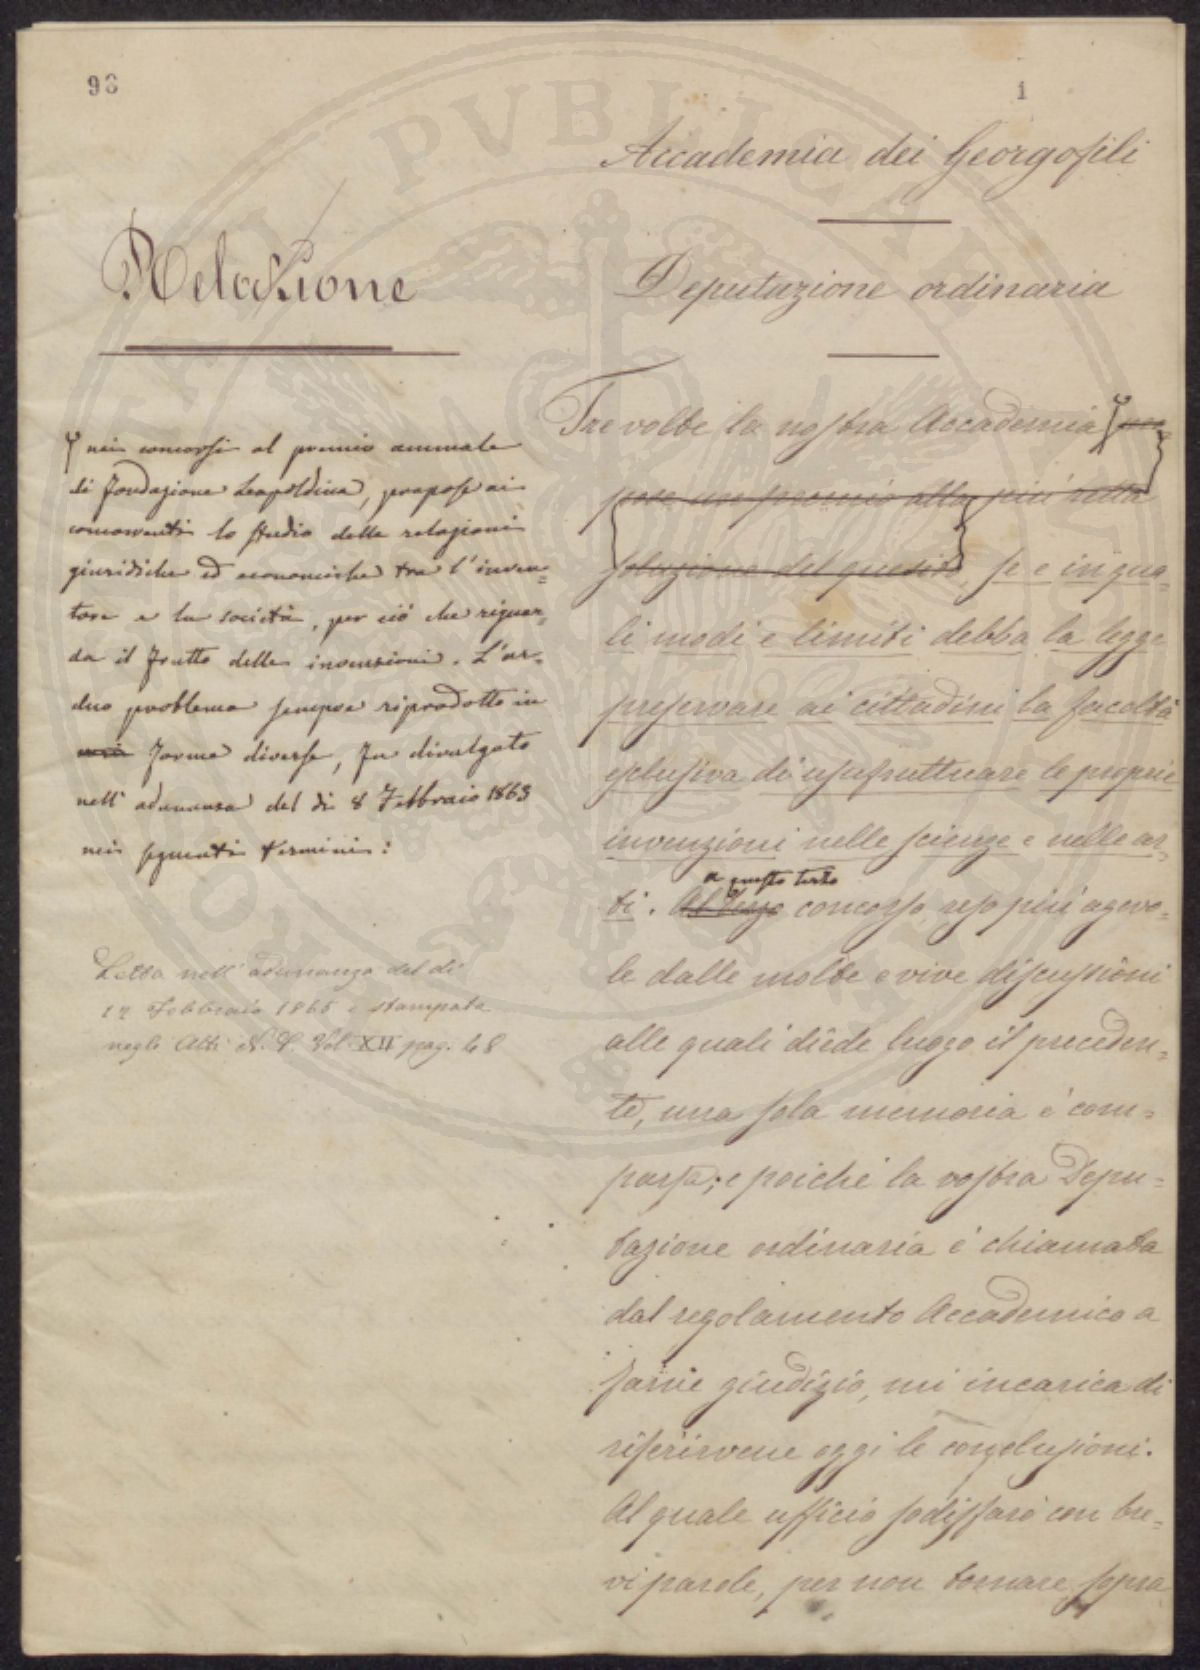 98
1
Accademia dei Georgofili
Deputazione ordinaria
Relazione
nei concorsi al premio annuale
di fondazione Leopoldina, propose ai
concorrenti lo studio delle relazioni
giuridiche ed economiche tra l'inven=
tore e la società, per ciò che riguar=
da il frutto delle invenzioni. L'ar=
duo problema sempre riprodotto in
forma diversa, fu divulgato
nell'adunanza del dì 8 Febbraio 1863
nei seguenti termini:
Letta nell'adunanza del dì
12 Febbraio 1865 e stampata
negli Atti N. S. Vol XII pag. 48
Tre volte la nostra Accademia pro=
pose un premio alla più retta
soluzione del quesito, se e in qua=
li modi e limiti debba la legge
preservare ai cittadini la facoltà
esclusiva di usufruttuare le proprie
invenzioni nelle scienze e nelle ar=
a questo terzo
ti. Al terzo concorso reso più agevo=
le dalle molte e vive discussioni
alle quali diede luogo il preceden=
te, una sola memoria è com=
parsa; e poiché la vostra Depu=
tazione ordinaria è chiamata
dal regolamento Accademico a
farne giudizio, mi incarica di
riferirvene oggi le conclusioni.
Al quale ufficio sodisfarò con bre=
vi parole, per non tornare sopra